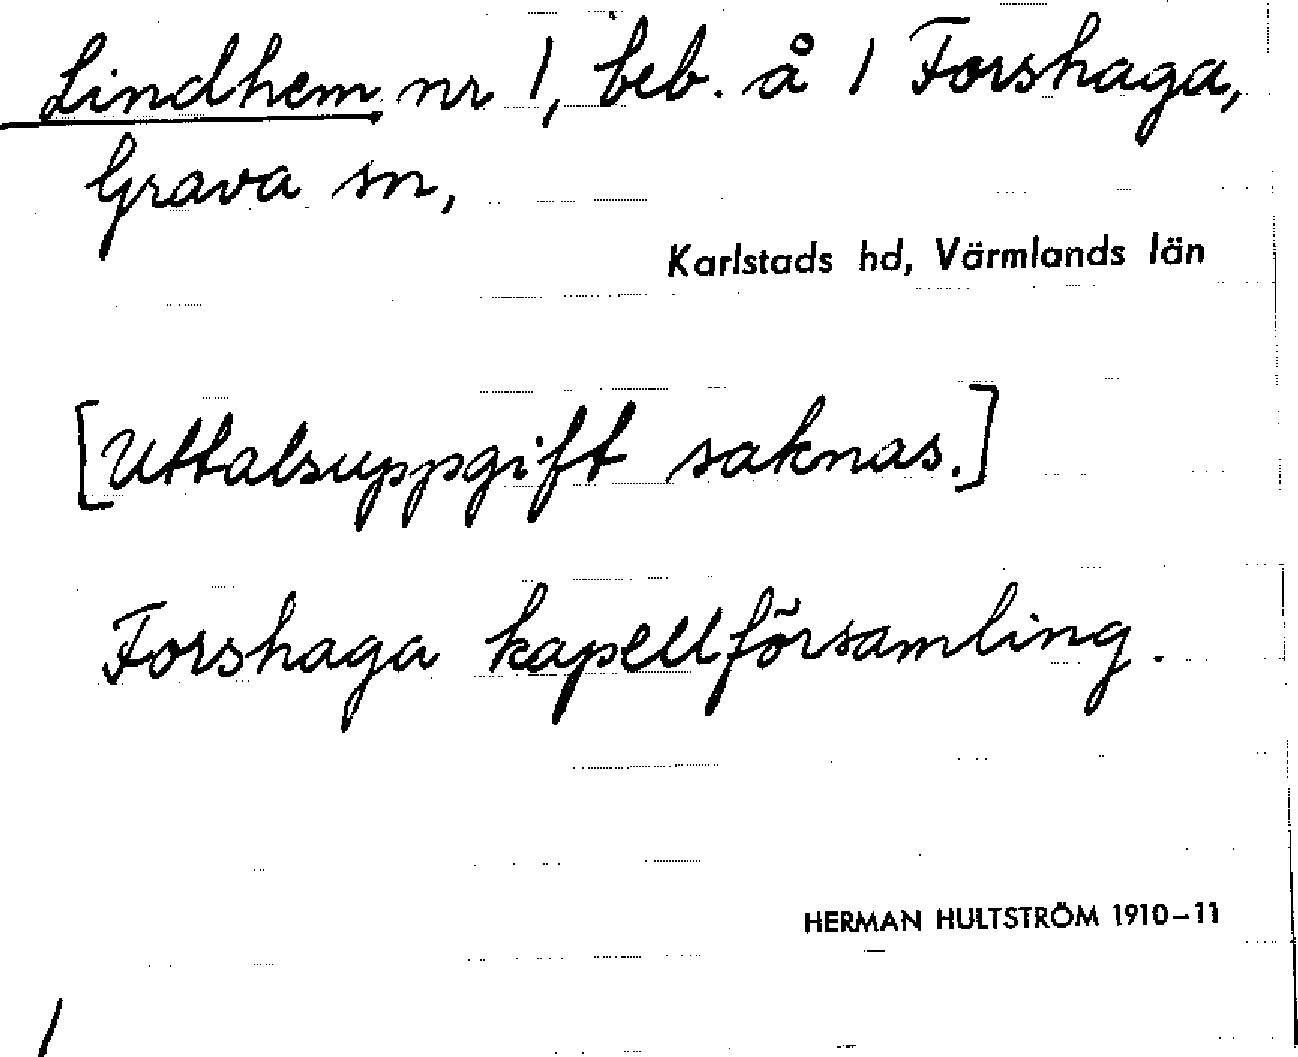 Lindhem nr 1, beb. å 1 Forshaga,
Grava sn,
Karlstads hd, Värmlands län
[Uttalsuppgift saknas.]
Forshaga kapellförsamling.
HERMAN HULTSTRÖM 1910–11
1